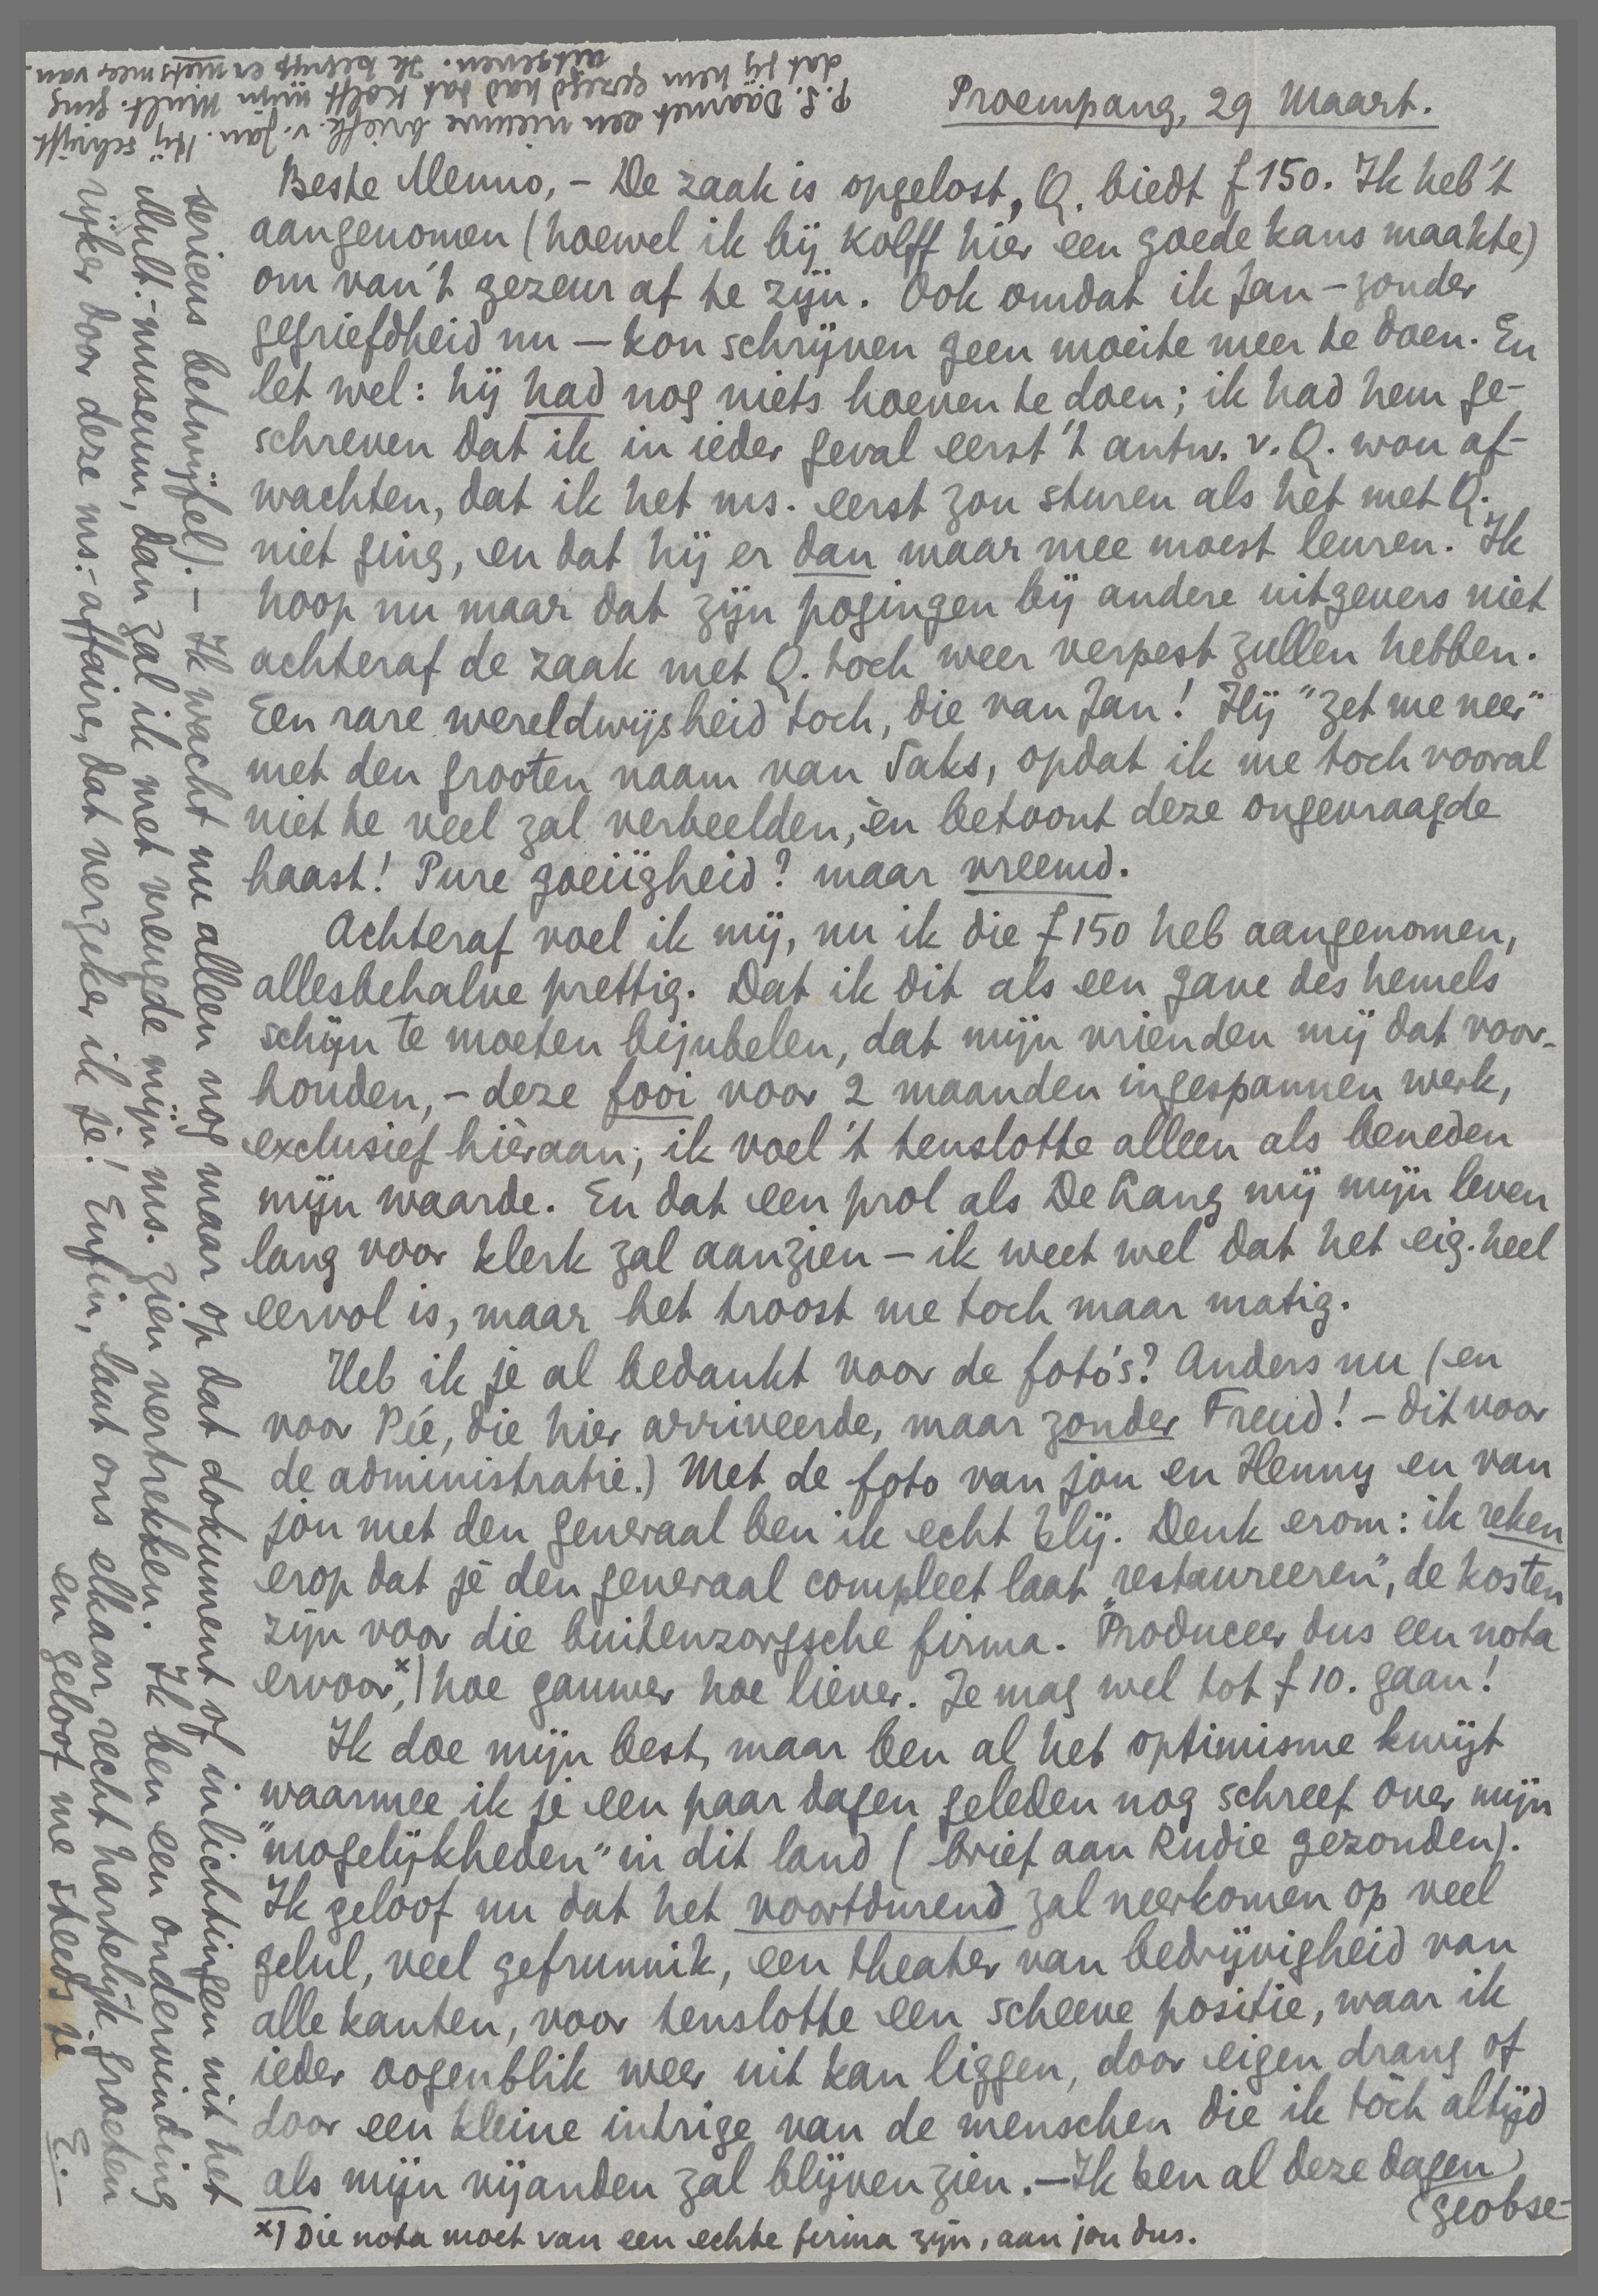 Proempang, 29 Maart.
Beste Menno, – De zaak is opgelost, Q. biedt f 150. Ik heb 't
aangenomen (hoewel ik bij Kolff hier een goede kans maakte)
om van 't gezeur af te zijn. Ook omdat ik Jan – zonder
gegriefdheid nu – kon schrijven geen moeite meer te doen. En
let wel: hij had nog niets hoeven te doen; ik had hem ge-
schreven dat ik in ieder geval eerst 't antw. v. Q. wou af-
wachten, dat ik het ms. eerst zou sturen als het met Q.
niet ging, en dat hij er dan maar mee moest leuren. Ik
hoop nu maar dat zijn pogingen bij andere uitgevers niet
achteraf de zaak met Q. toch weer verpest zullen hebben.
Een rare wereldwijsheid toch, die van Jan! Hij "zet me neer"
met den grooten naam van Saks, opdat ik me toch vooral
niet te veel zal verbeelden, èn betoont deze ongevraagde
haast! Pure goeiïgheid? maar vreemd.
Achteraf voel ik mij, nu ik die f 150 heb aangenomen,
allesbehalve prettig. Dat ik dit als een gave des hemels
schijn te moeten bejubelen, dat mijn vrienden mij dat voor-
houden, – deze fooi voor 2 maanden ingespannen werk,
exclusief hièraan; ik voel 't tenslotte alleen als beneden
mijn waarde. En dat een prol als De Kang mij mijn leven
lang voor klerk zal aanzien – ik weet wel dat het eig. heel
eervol is, maar het troost me toch maar matig.
Heb ik je al bedankt voor de foto's? Anders nu (en
voor Pié, die hier arriveerde, maar zonder Freud! – dit voor
de administratie.) Met de foto van jou en Henny en van
jou met den generaal ben ik echt blij. Denk erom: ik reken
erop dat je den generaal compleet laat "restaureeren", de kosten
zijn voor die buitenzorgsche firma. Produceer dus een nota
ervoor, x) hoe gauwer hoe liever. Je mag wel tot f 10. gaan!
Ik doe mijn best, maar ben al het optimisme kwijt
waarmee ik je een paar dagen geleden nog schreef over mijn
"mogelijkheden" in dit land (brief aan Rudie gezonden).
Ik geloof nu dat het voortdurend zal neerkomen op veel
gelul, veel gefrunnik, een theater van bedrijvigheid van
alle kanten, voor tenslotte een scheeve positie, waar ik
ieder oogenblik weer uit kan liggen, door eigen drang of
door een kleine intrige van de menschen die ik tòch altijd
als mijn vijanden zal blijven zien. – Ik ben al deze dagen
(geobse-
x) Die nota moet van een echte firma zijn, aan jou dus.
serieus betwijfel). – Ik wacht nu alleen nog maar op dat dokument of inlichtingen uit het
Mult.-museum, dan zal ik met vreugde mijn ms. zien vertrekken. Ik ben een ondervinding
rijker door deze ms.-affaire, dat verzeker ik je! Enfin, laat ons elkaar recht hartelijk groeten
en geloof me steeds je E. –
P.S. Daarnet een nieuwe briefk. v. Jan. Hij schrijft
dat jij hem gezegd had dat Kolff mijn Mult. ging
uitgeven. Ik begrijp er niets meer van.